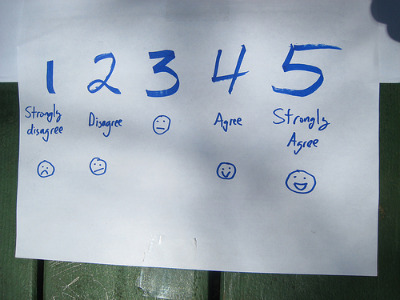 1 2 3 4 5
Strongly disagree Disagree Agree Strongly Agree